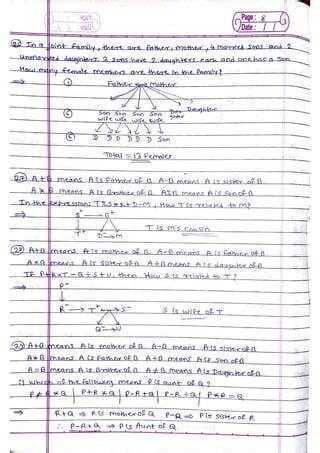 Page: 8
Date:
26) In a joint family, there are father, mother, 4 married sons and 2
unmarried daughters. 3 sons have 2 daughters each and one has a son
How many female members are there in the family?
⇒ Father ↔ Mother
6) Son Son Son Son Dau Daughter
wife wife wife wife ghter
6) D D D D D Son
Total = 13 Females
27) A+B means A is Father of B. A-B means A is sister of B
A * B means A is Brother of B. A I B means A is Son of B
In the expression: T I S * K + D - M, How T is related to M?
⇒ S⁺ — K⁺
T⁺ D⁻ → M T is M's cousin
28) A+B means A is mother of B. A-B means A is Father of B
A×B means A is sister of B. A÷B means A is daughter of B
If P+R×T-Q÷S+U, then How S is related to T?
⇒ P⁻
R⁻ → T⁺ S⁻ S is Wife of T
Q⁻ → U
29) A+B means A is mother of B A-B means A is sister of B
A*B means A is Father of B A÷B means A is Son of B
A=B means A is Brother of B A≠B means A is Daughter of B
1) Which of the following means P is aunt of Q?
P≠R*Q | P+R*Q | P-R+Q | P-R÷Q | P*R=Q
⇒ R+Q ⇒ R is mother of Q P-R ⇒ P is sister of R
∴ P-R+Q ⇒ P is Aunt of Q.